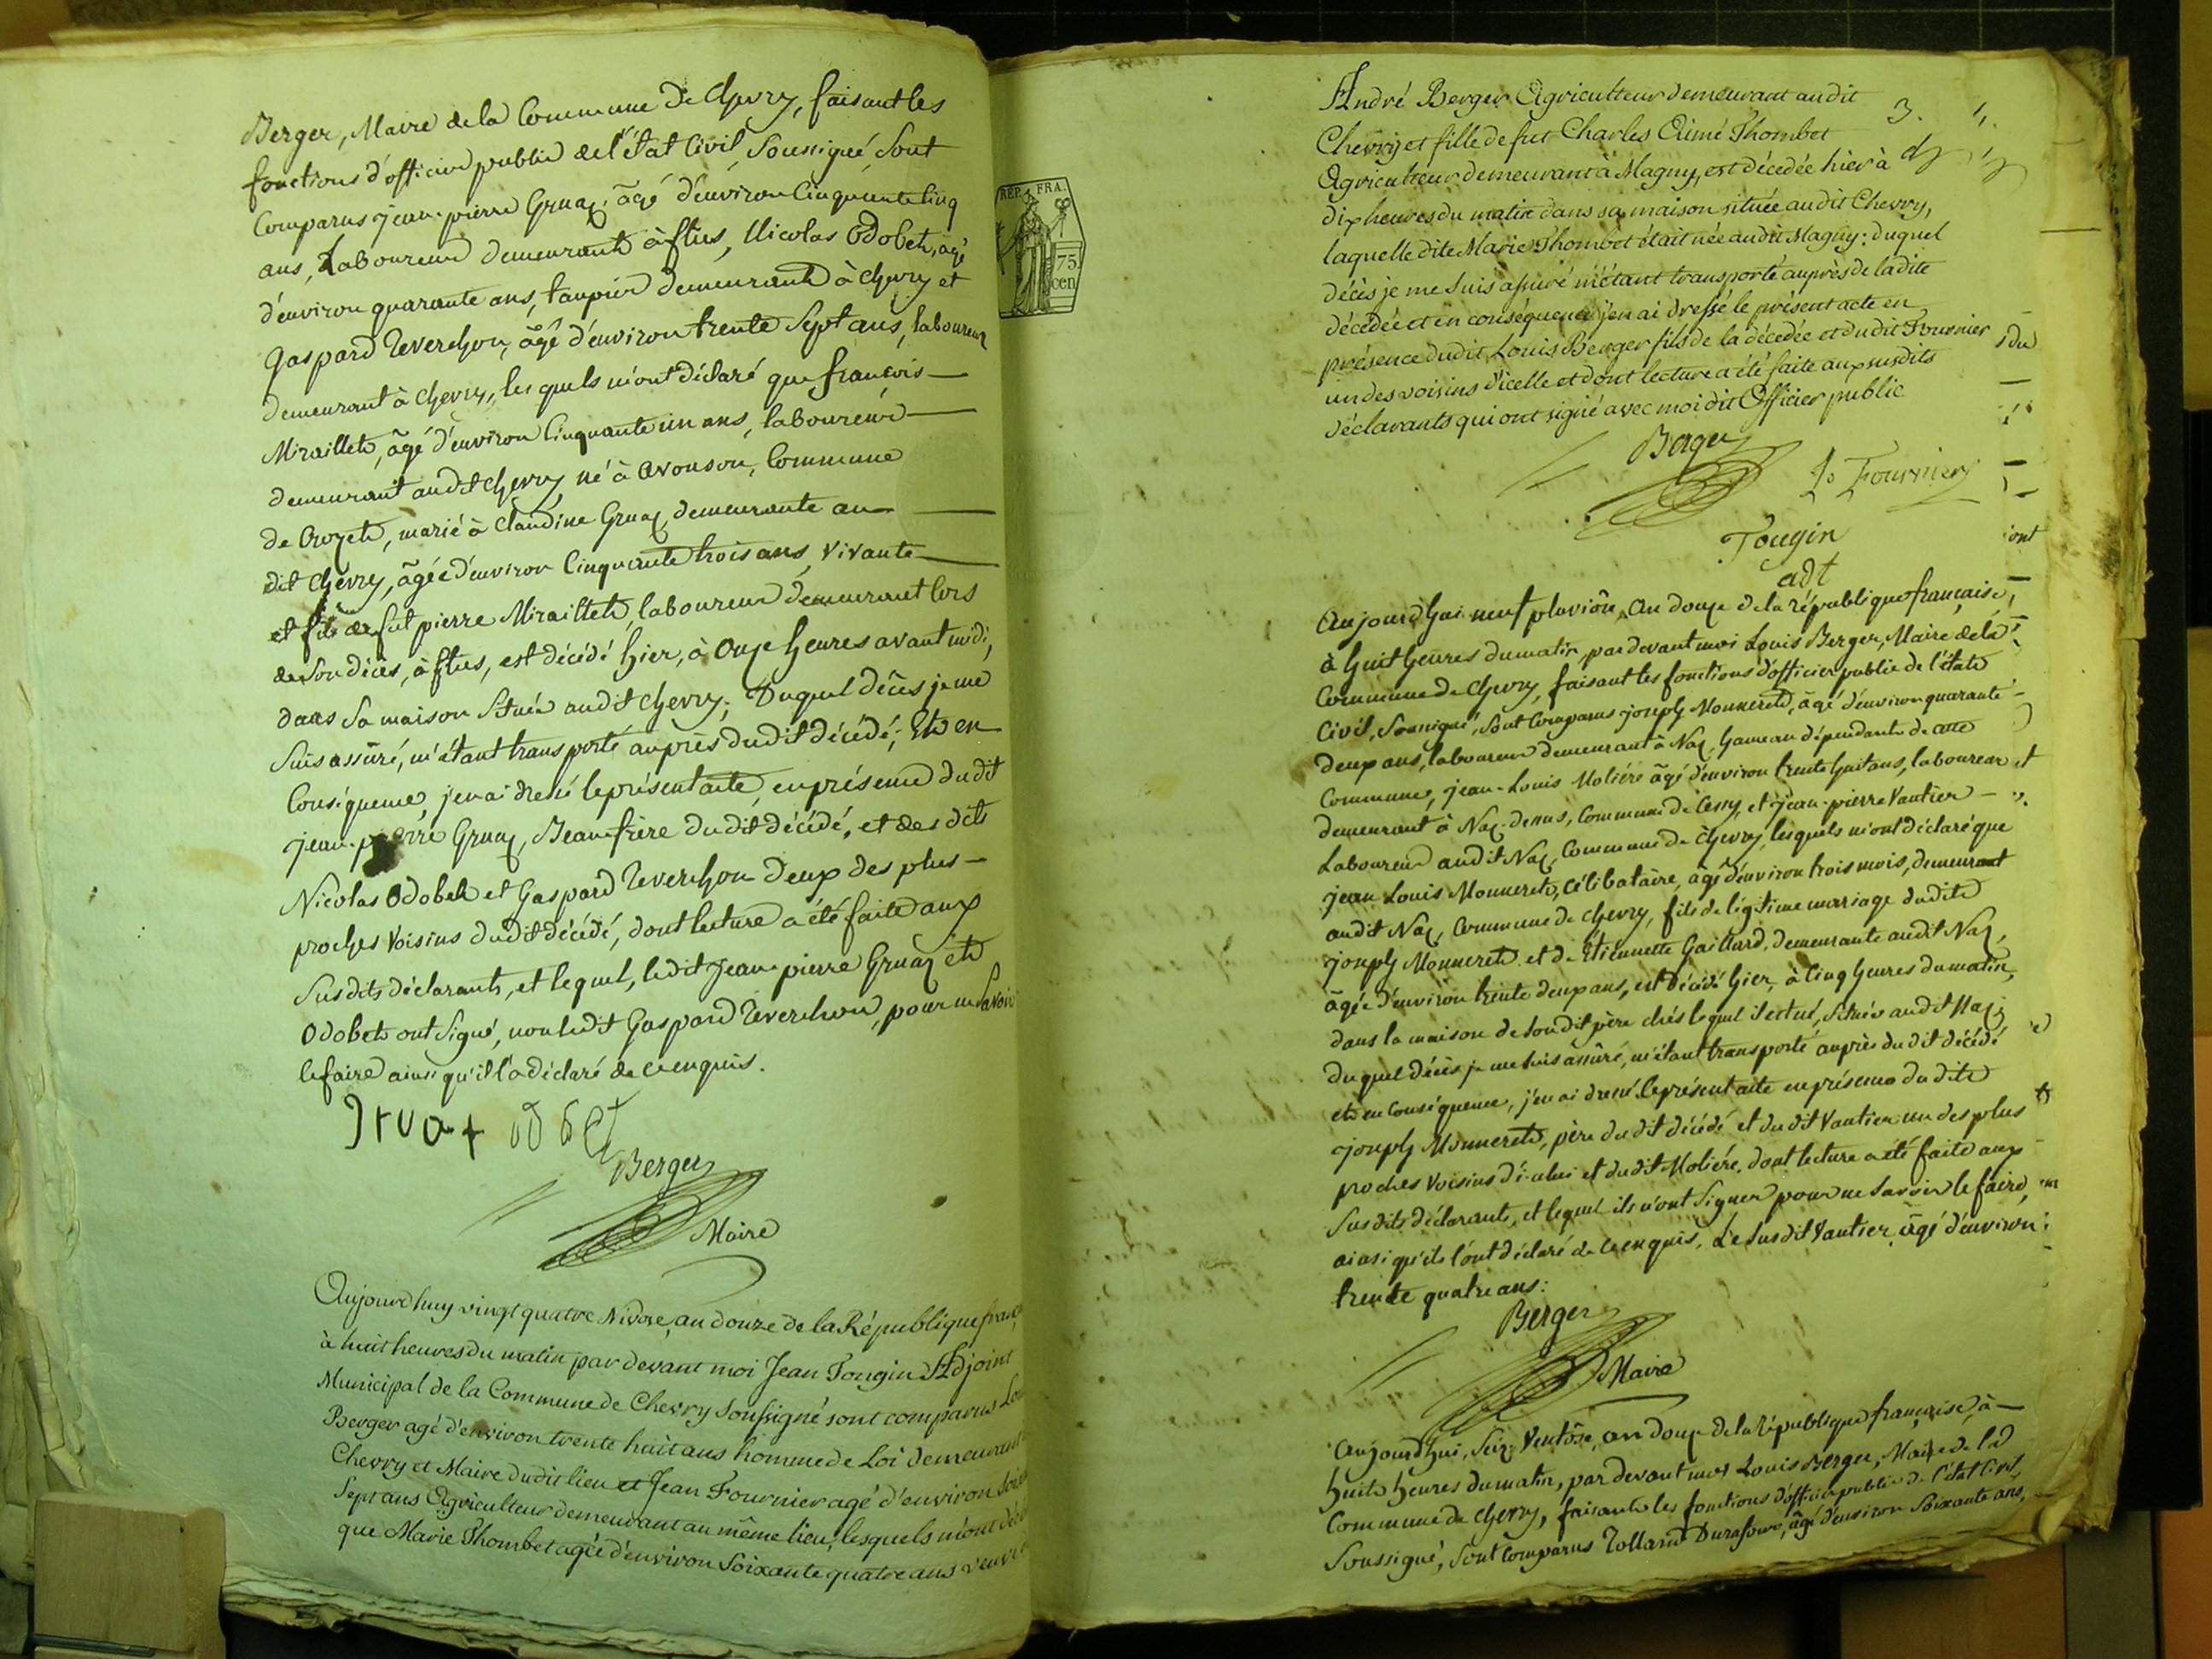 Berger, Maire de la Commune de Chevry, faisant les
fonctions d'officier public de l'état Civil, Soussigné, Sont
Comparus jean-pierre Gruaz, âgé d'environ Cinquante Cinq
ans, Laboureur demeurant à flies, Nicolas Odobet, agé
d'environ quarante ans, taupier demeurant à chevry et
gaspard Reverchon, âgé d'environ trente Sept ans, laboureur
demeurant à chevry, lesquels m'ont déclaré que françois
Miraillet, âgé d'environ Cinquante un ans, laboureur
demeurant audit chevry, né à avouson, Commune
de Crozet, marié à Claudine Gruaz, demeurante au
dit chevry, âgée d'environ Cinquante trois ans, vivante
et fils de fut pierre Miraillet, laboureur demeurant lors
de Son décès, à flies, est décédé hier, à Onze heures avant midi,
dans Sa maison Située audit chevry; Duquel décès je me
Suis assûré, m'étant transporté auprès dudit décédé; Et en
Conséquence, j'en ai dressé le présent acte, en présence dudit
jean-pierre Gruaz, Beaufrère dudit décédé, et des dits
Nicolas Odobet et Gaspard Reverchon deux des plus
proches Voisins dudit décédé, dont lecture a été faite aux
Susdits déclarants, et lequel, ledit jean-pierre Gruaz et
Odobet ont Signé, non ledit Gaspard Reverchon, pour ne Savoir
le faire ainsi qu'il l'a déclaré de ce enquis.
Berger
Maire
Aujourdhuy vingt quatre Nivose, an douze de la République franç
à huit heures du matin par devant moi Jean Tougin Adjoint
Municipal de la Commune de Chevry Soussigné sont comparus Lou
Berger agé d'environ trente huit ans homme de Loi demeurant
Chevry et Maire dudit lieu et Jean Fournier agé d'environ
Sept ans Agriculteur demeurant au même lieu, lesquels m'ont
que Marie Thombet agée d'environ Soixante quatre ans
REP. FRA.
75
cen
André Berger Agriculteur demeurant audit
Chevry et fille de fut Charles Aimé Thombet
Agriculteur demeurant à Magny, est décédée hier à
dix heures du matin dans sa maison située audit Chevry,
laquelle dite Marie Thombet était née audit Magny: duquel
décès je me suis assuré m'étant transporté auprès de ladite
décédée et en conséquence j'en ai dressé le présent acte en
présence dudit Louis Berger fils de la décedée et dudit Fournier
un des voisins d'icelle et dont lecture a été faite aux susdits
déclarants qui ont signé avec moi dit Officier public
Berger
Jo Fournier
Tougin
adt
Aujourdhui neuf pluviôse, An douze de la république française,
à huit heures du matin, par devant moi Louis Berger, Maire de la
Commune de Chevry, faisant les fonctions d'officier public de l'état
Civil, Soussigné, Sont Comparus joseph Monneret, âgé d'environ quarante
deux ans, laboureur demeurant à Naz, hameau dépendant de cette
Commune, jean-Louis Moliére âgé d'environ trente huit ans, laboureur
demeurant à Naz-dessus, Commune de Cessy, et jean-pierre Vautier
Laboureur audit Naz, Commune de chevry, lesquels m'ont déclaré que
jean Louis Monneret, Célibataire, âgé d'environ trois mois, demeurant
audit Naz, Commune de chevry, fils de légitime mariage dudit
joseph Monneret et de Etiennette Gaillard, demeurante audit Naz,
âgée d'environ trente deux ans, est décédé hier, à Cinq heures du matin,
dans la maison de Son dit père chés lequel il est né, Située audit Naz;
duquel décès je me Suis assûré, m'étant transporté auprès du dit décédé
et en Conséquence, j'en ai dressé le présent acte en présence du dit
joseph Monneret, père du dit décédé et du dit Vautier un des plus
proches Voisins d'icelui et dudit Moliére, dont lecture a été faite aux
Susdits déclarants, et lequel ils n'ont Signer pour ne Savoir le faire,
ainsi qu'ils l'ont déclaré de ce enquis, Le Susdit Vautier, âgé d'environ
trente quatre ans:
Berger
Maire
Aujourdhui, Seiz Ventôse, an douze de la république française, à
huit heures du matin, par devant moi Louis Berger, Maire de la
Commune de chevry, faisant les fonctions d'officier public de l'état Civil,
Soussigné, Sont Comparus Rolland Durafour, âgé d'environ Soixante ans,